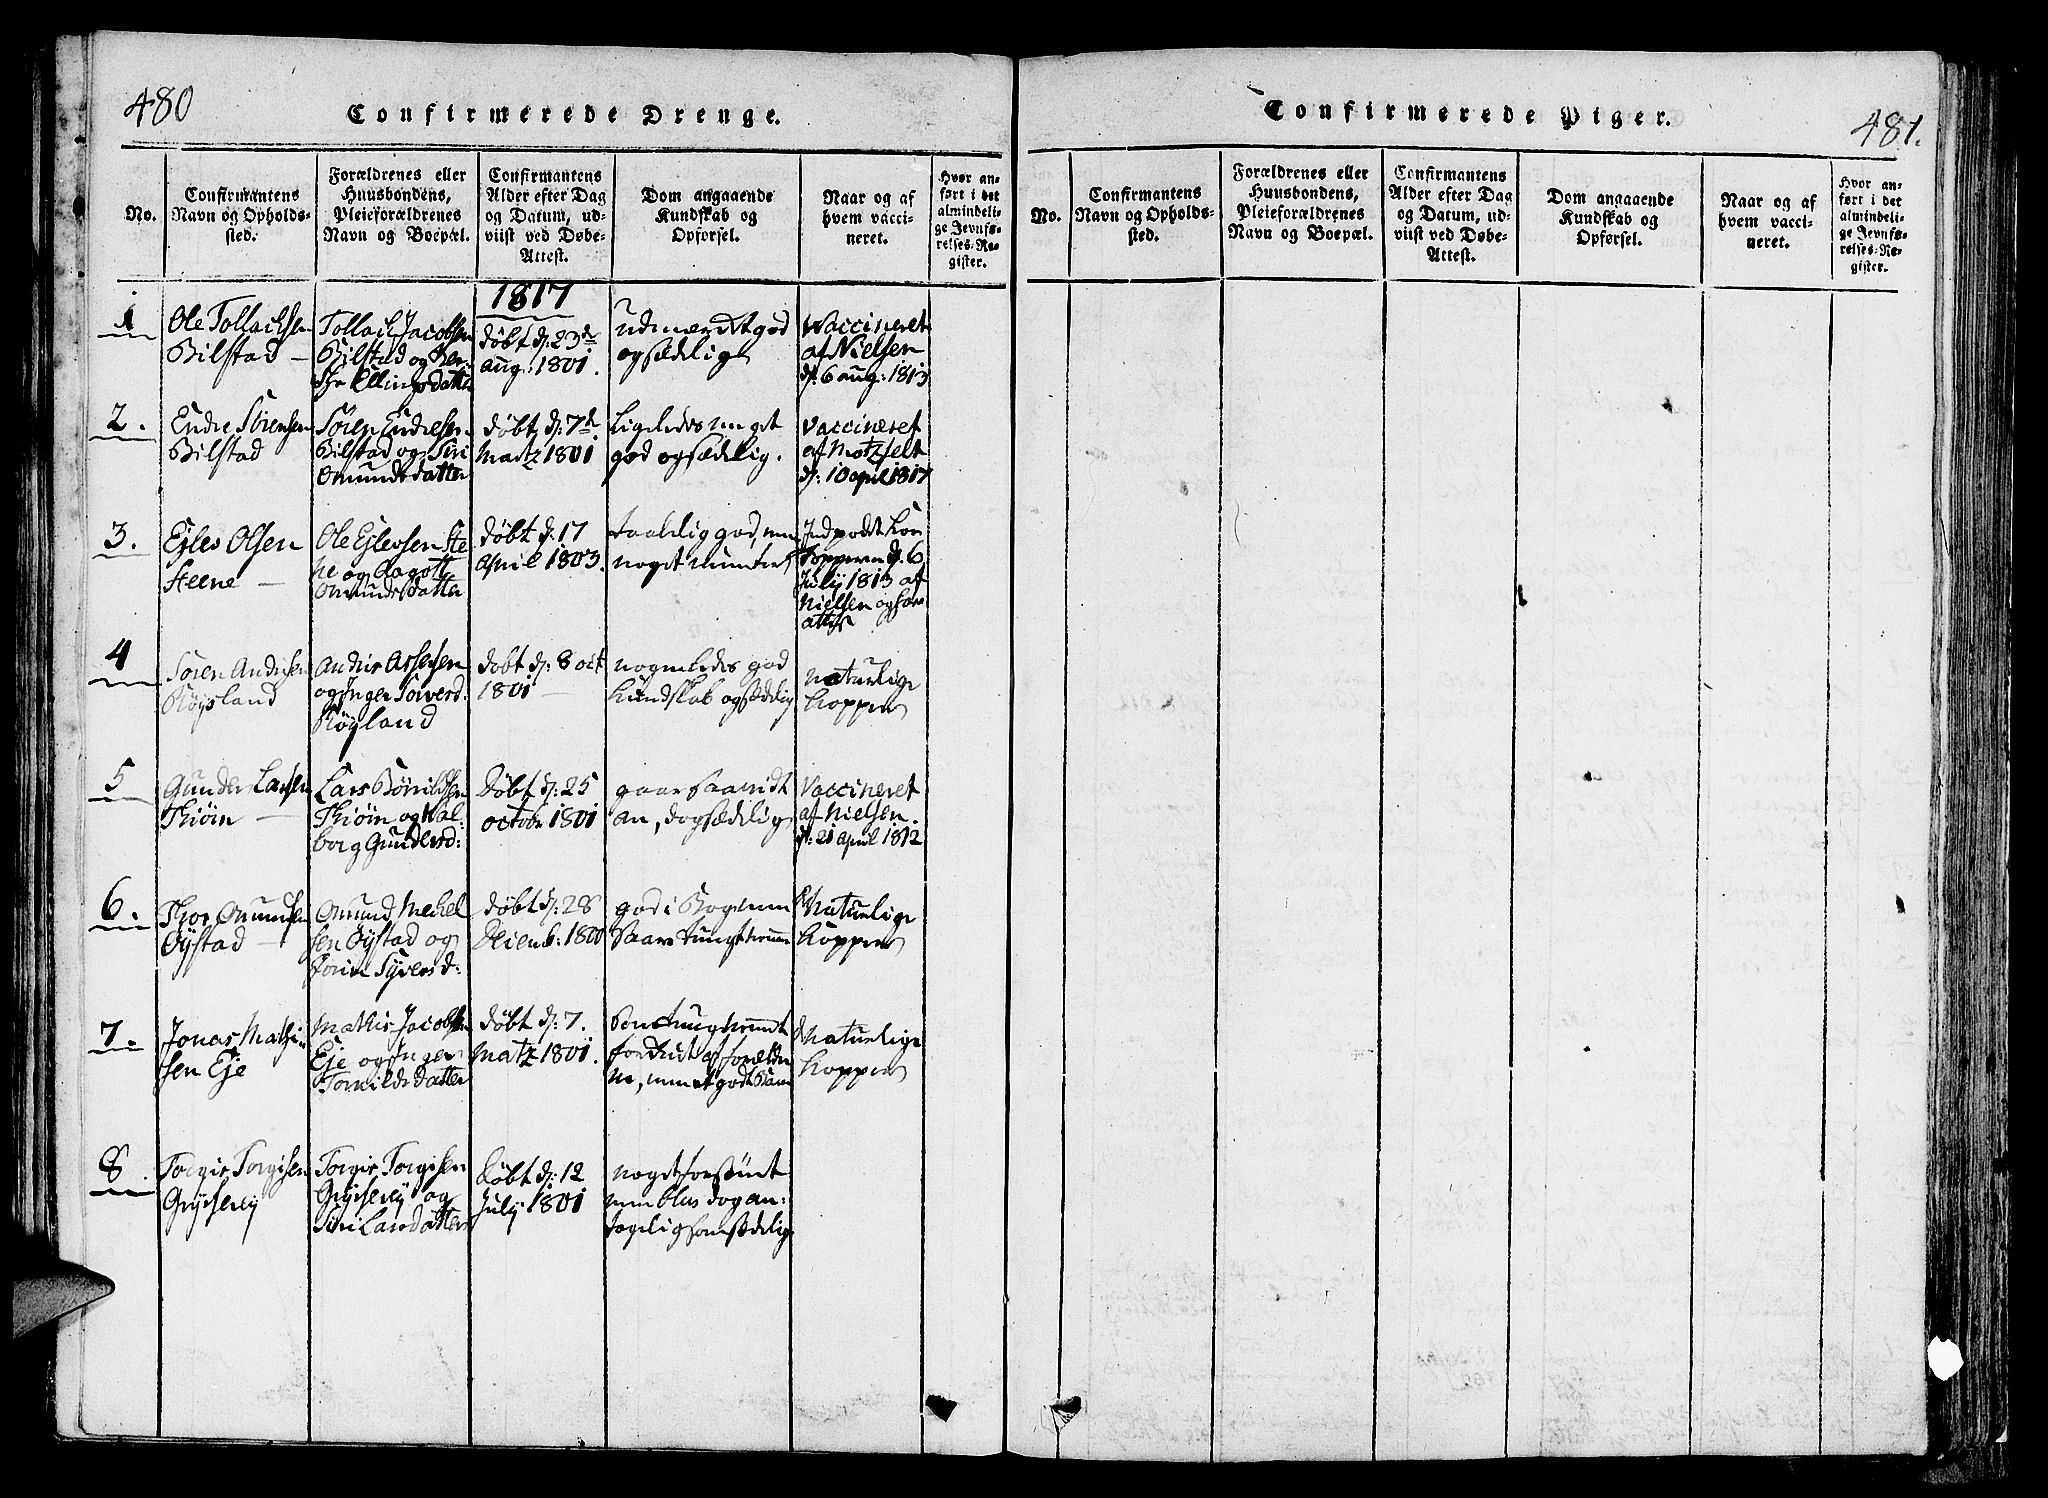 480
Confirmerede Drenge.
No.
Confirmantens
Navn og Opholds-
sted.
Forældrenes eller
Huusbondens,
Pleieforældrenes
Navn og Boepæl.
Confirmantens
Alder efter Dag
og Datum, ud-
viist ved Døbe-
Attest.
Dom angaaende
Kundskab og
Opførsel.
Naar og af
hvem vacci-
neret.
Hvor an-
ført i det
almindeli-
ge Jevnfø-
relses-Re-
gister.
1817
1
Ole Tollachsen
Bilstad —
Tollach Jacobsen
Bilstad og
Ellingsdatter
døbt d: 23de
aug: 1801.
Udmerket god
og sædelig
Vaccineret
af Nielsen
d: 6 aug: 1813
2.
Endre Sörensen
Bilstad
Sören Endresen
Bilstad og Siri
Omundsdatter
døbt d: 7de
Martz 1801
Ligeledes meget
god og sædelig.
Vaccineret
af Motzfelt
d: 10 april 1817
3.
Ejlev Olsen
Steene —
Ole Ejlevsen Ste
ne og Ragotte
Omundsdatter
døbt d: 17
april 1803.
taalelig god, men
noget munter
Indpodet Kou
kopperne d. 6
July 1813 af
Nielsen og
4
Sören Andersen
Röysland
Andris Assersen
og Inger Siversd.
Röysland
døbt d: 8 oct
1801 —
nogenledes god
kundskab og sædelig
naturlige
kopper
5
Gunder Larsen
Thiöin —
Lars Börildsen
Thiöin og Wal-
borg Gundersd:
Døbt d: 25
octobr 1801
gaar saavidt
an, dog sædelig
Vaccineret
af Nielsen.
d: 21 april 1812
6.
Thor Omundsen
Öystad —
Omund Mechel
sen Öystad og
Jorin Syversd:
døbt d: 28
1800
god i Bogen men
saare tungt nemme
Naturlige
kopper
7.
Jonas Mathi-
sen Eje
Mathis Jacobsen
Eje og Inger
Torkildsdatter
døbt d: 7.
Martz 1801.
tungnemt
af forældre
ne, men et godt Barn
Naturlige
kopper
8.
Torgis Torgisen
Gryserej
Torgis Torgisen
Gryserej og
Siri Larsdatter
Døbt d: 12
July 1801
noget forsömt
men blev dog an-
tagelig som sædelig
Confirmerede Piger.
481.
No.
Confirmantens
Navn og Opholds-
sted.
Forældrenes eller
Huusbondens,
Pleieforældrenes
Navn og Boepæl.
Confirmantens
Alder efter Dag
og Datum, ud-
viist ved Døbe-
Attest.
Dom angaaende
Kundskab og
Opførsel.
Naar og af
hvem vacci-
neret.
Hvor an-
ført i det
almindeli-
ge Jevnfø-
relses-Re-
gister.